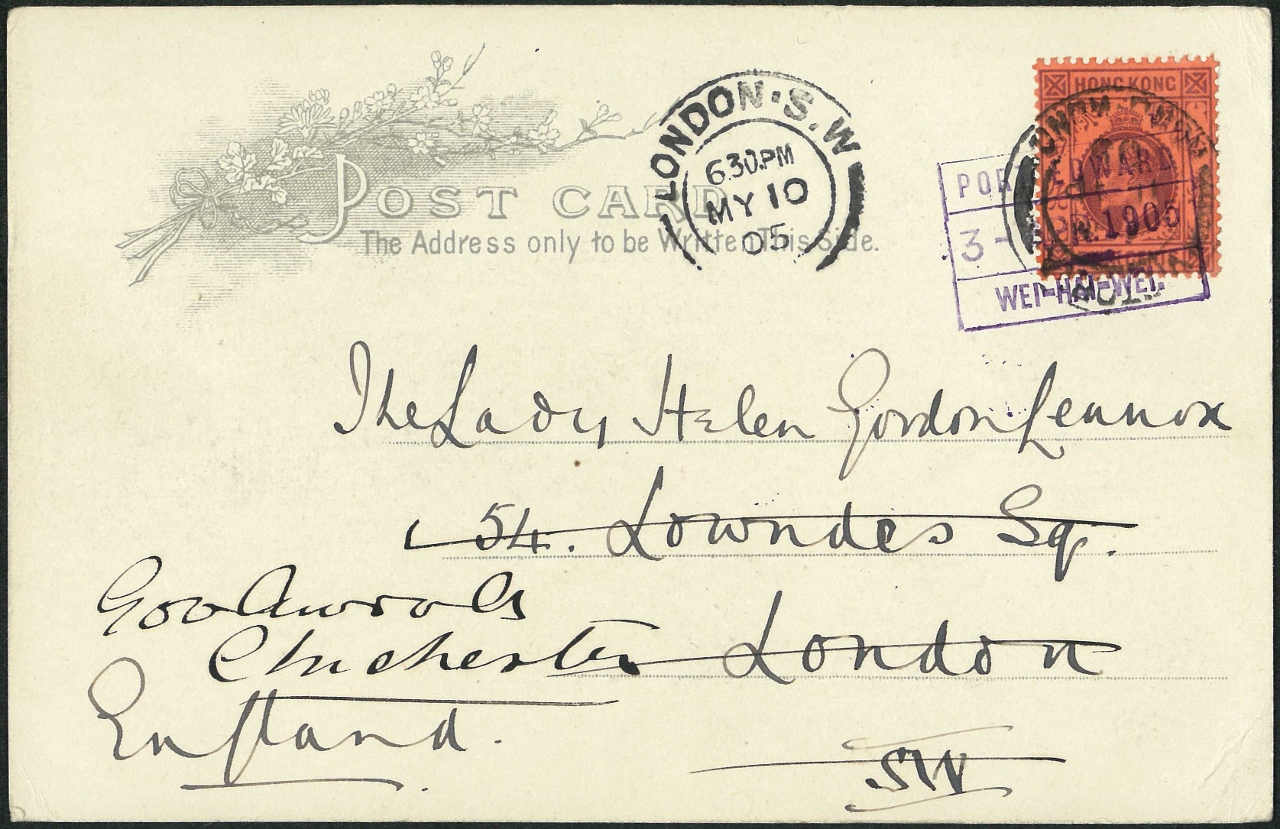 HONG KONG
LONDON·S.W
6.30.PM
MY 10
05
PORT EDWARD
3 - N. 1905
WEI-HAI-WEI.
POST CARD
The Address only to be Written This Side.
The Lady Helen Gordon Lennox
54. Lowndes Sq.
Goodwood
Chichester London
England.
SW